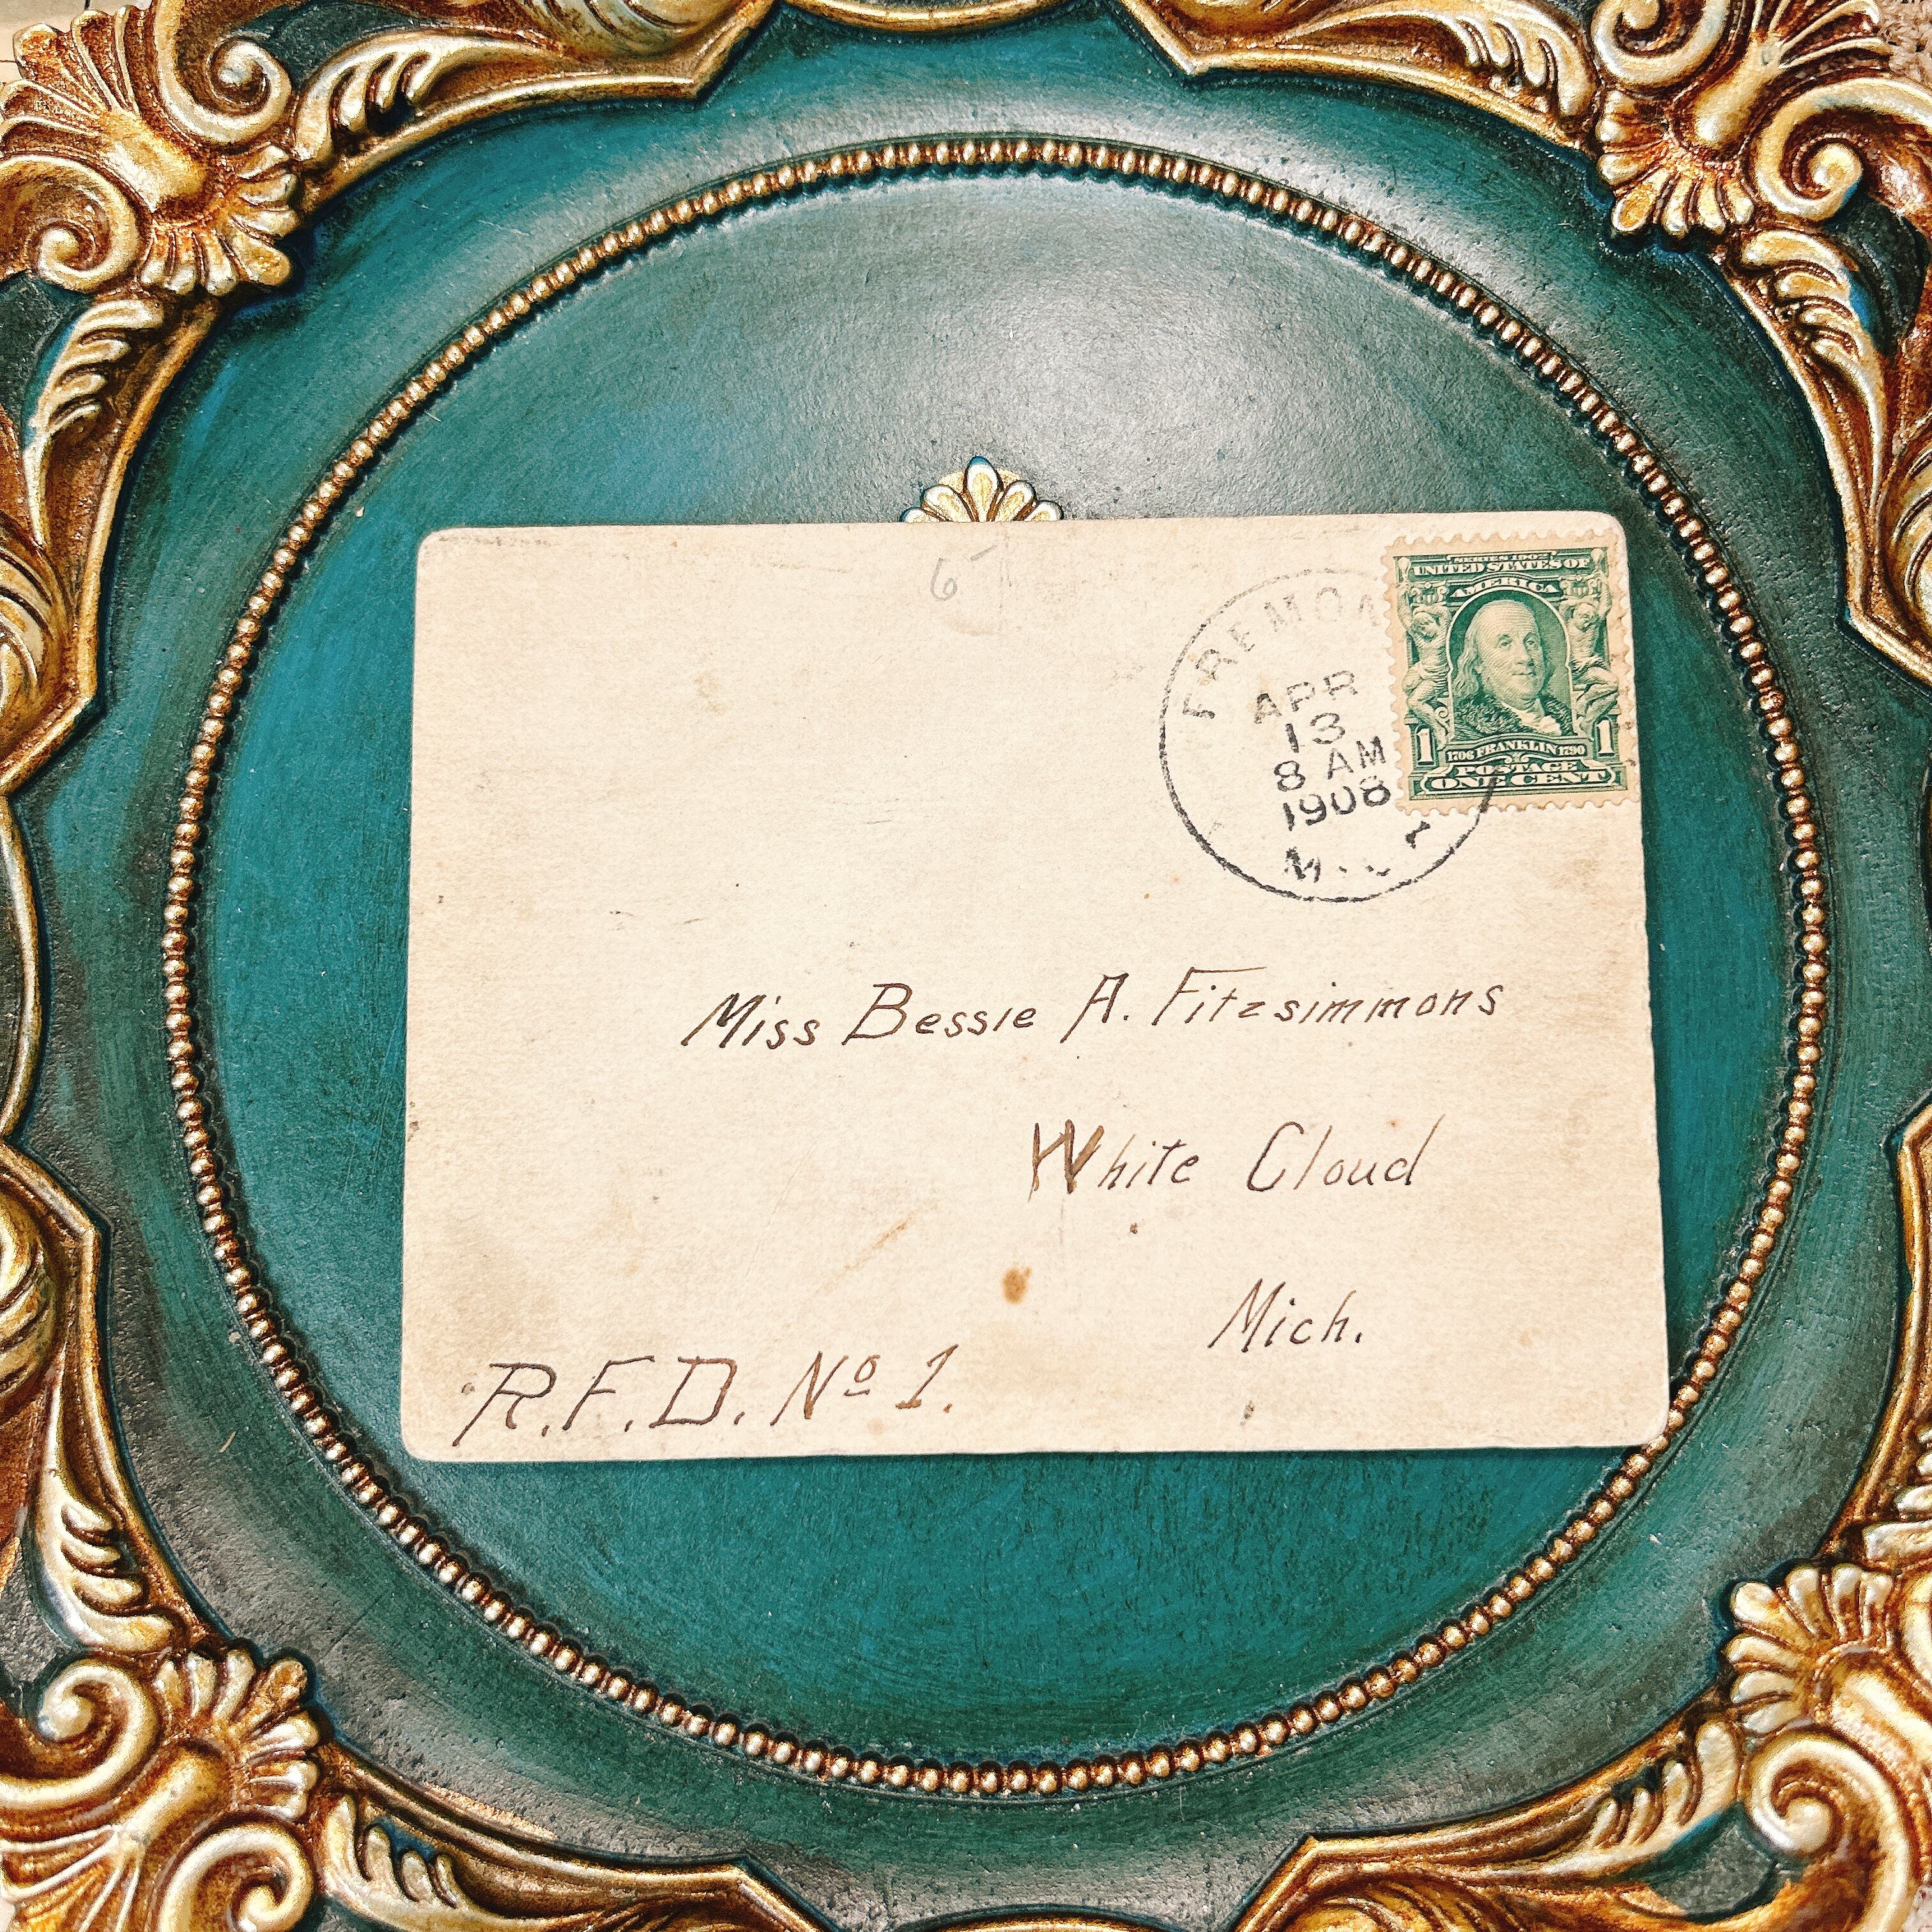 6
FREMON
APR
13
8 AM
1908
SERIES 1902
UNITED STATES OF
AMERICA
1 1
1706 FRANKLIN 1790
POSTAGE
ONE CENT
Miss Bessie A. Fitzsimmons
White Cloud
Mich.
R.F.D. Nº 1.